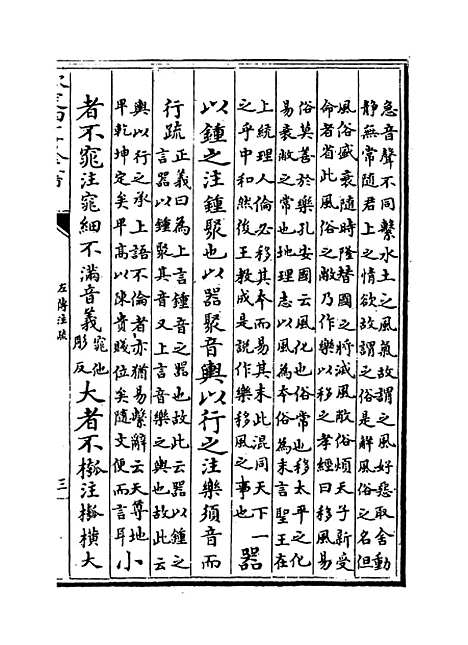 急音聲不同繫水土之風氣故謂之風好惡取舍動
靜無常隨君上之情欲故謂之俗是解風俗之名但
風俗盛衰隨時隆替國之將滅風散俗煩天子新受
命者省此風俗之敝乃作樂以移之孝經曰移風易
俗莫善於樂孔安國云風化也俗常也移太平之化
易衰敝之常也地理志以風為本俗為末言聖王在
上統理人倫必移其本而易其末此混同天下一
之乎中和然後王教成是說作樂移風之事也
器
以鍾之注鍾聚也以器聚音輿以行之注樂須音而
行疏
正義曰為上言鍾音之器也故此云器以鍾之
言器以鍾聚其音又上言音樂之輿也故此云
輿以行之承上語不倫者亦猶易繫辭云天尊地
卑乾坤定矣卑高以陳貴賤位矣隨文便而言耳
小
者不窕注窕細不滿音義
窕他
彫反
大者不摦注摦橫大
左傳注疏